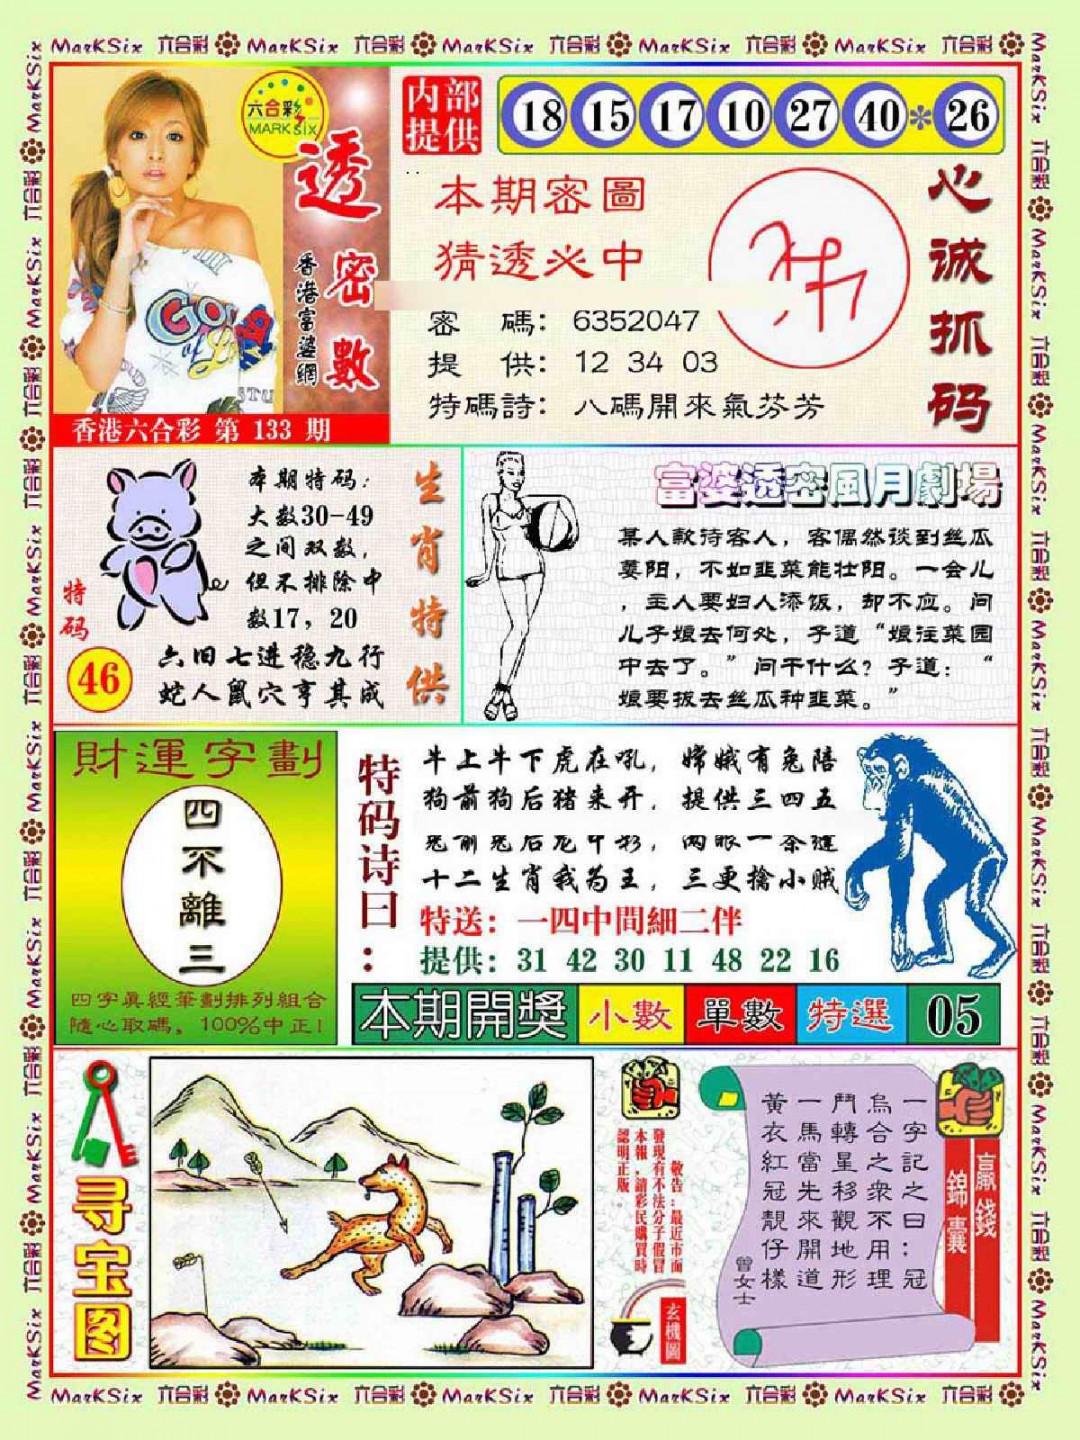 MarKSix 六合彩 MarKSix 六合彩 MarKSix 六合彩 MarKSix 六合彩 MarKSix 六合彩
六合彩
MARK SIX
透密數
香港富婆網
香港六合彩 第 133 期
内部
提供
18 15 17 10 27 40 * 26
本期密圖
猜透必中
密 碼: 6352047
提 供: 12 34 03
特碼詩: 八碼開來氣芬芳
心诚抓码
本期特码:
大数30-49
之间双数,
但不排除中
数17, 20
特码
46
六旧七进稳九行
蛇人鼠穴亨其成
生肖特供
富婆透密風月劇場
某人款待客人, 客偶然谈到丝瓜
萎阳, 不如韭菜能壮阳。一会儿
, 主人要妇人添饭, 却不应。问
儿子娘去何处, 子道“娘往菜园
中去了。”问干什么? 子道: “
娘要拔去丝瓜种韭菜。”
財運字劃
四不離三
四字眞經筆劃排列組合
隨心取碼, 100%中正!
特码诗曰:
牛上牛下虎在吼, 嫦娥有兔陪
狗前狗后猪来开, 提供三四五
兔前兔后龙中彩, 两眼一条
十二生肖我为王, 三更擒小贼
特送: 一四中間細二伴
提供: 31 42 30 11 48 22 16
本期開獎 小數 單數 特選 05
寻宝图
敬告:最近市面
發現有不法分子假冒
本報,請彩民購買時
認明正版。
玄機圖
一字記之曰:冠
烏合之衆不用理
鬥轉星移觀地形
一馬當先來開道
黃衣紅冠靚仔樣
曾女士
贏錢
錦囊
MarKSix 六合彩 MarKSix 六合彩 MarKSix 六合彩 MarKSix 六合彩 MarKSix 六合彩